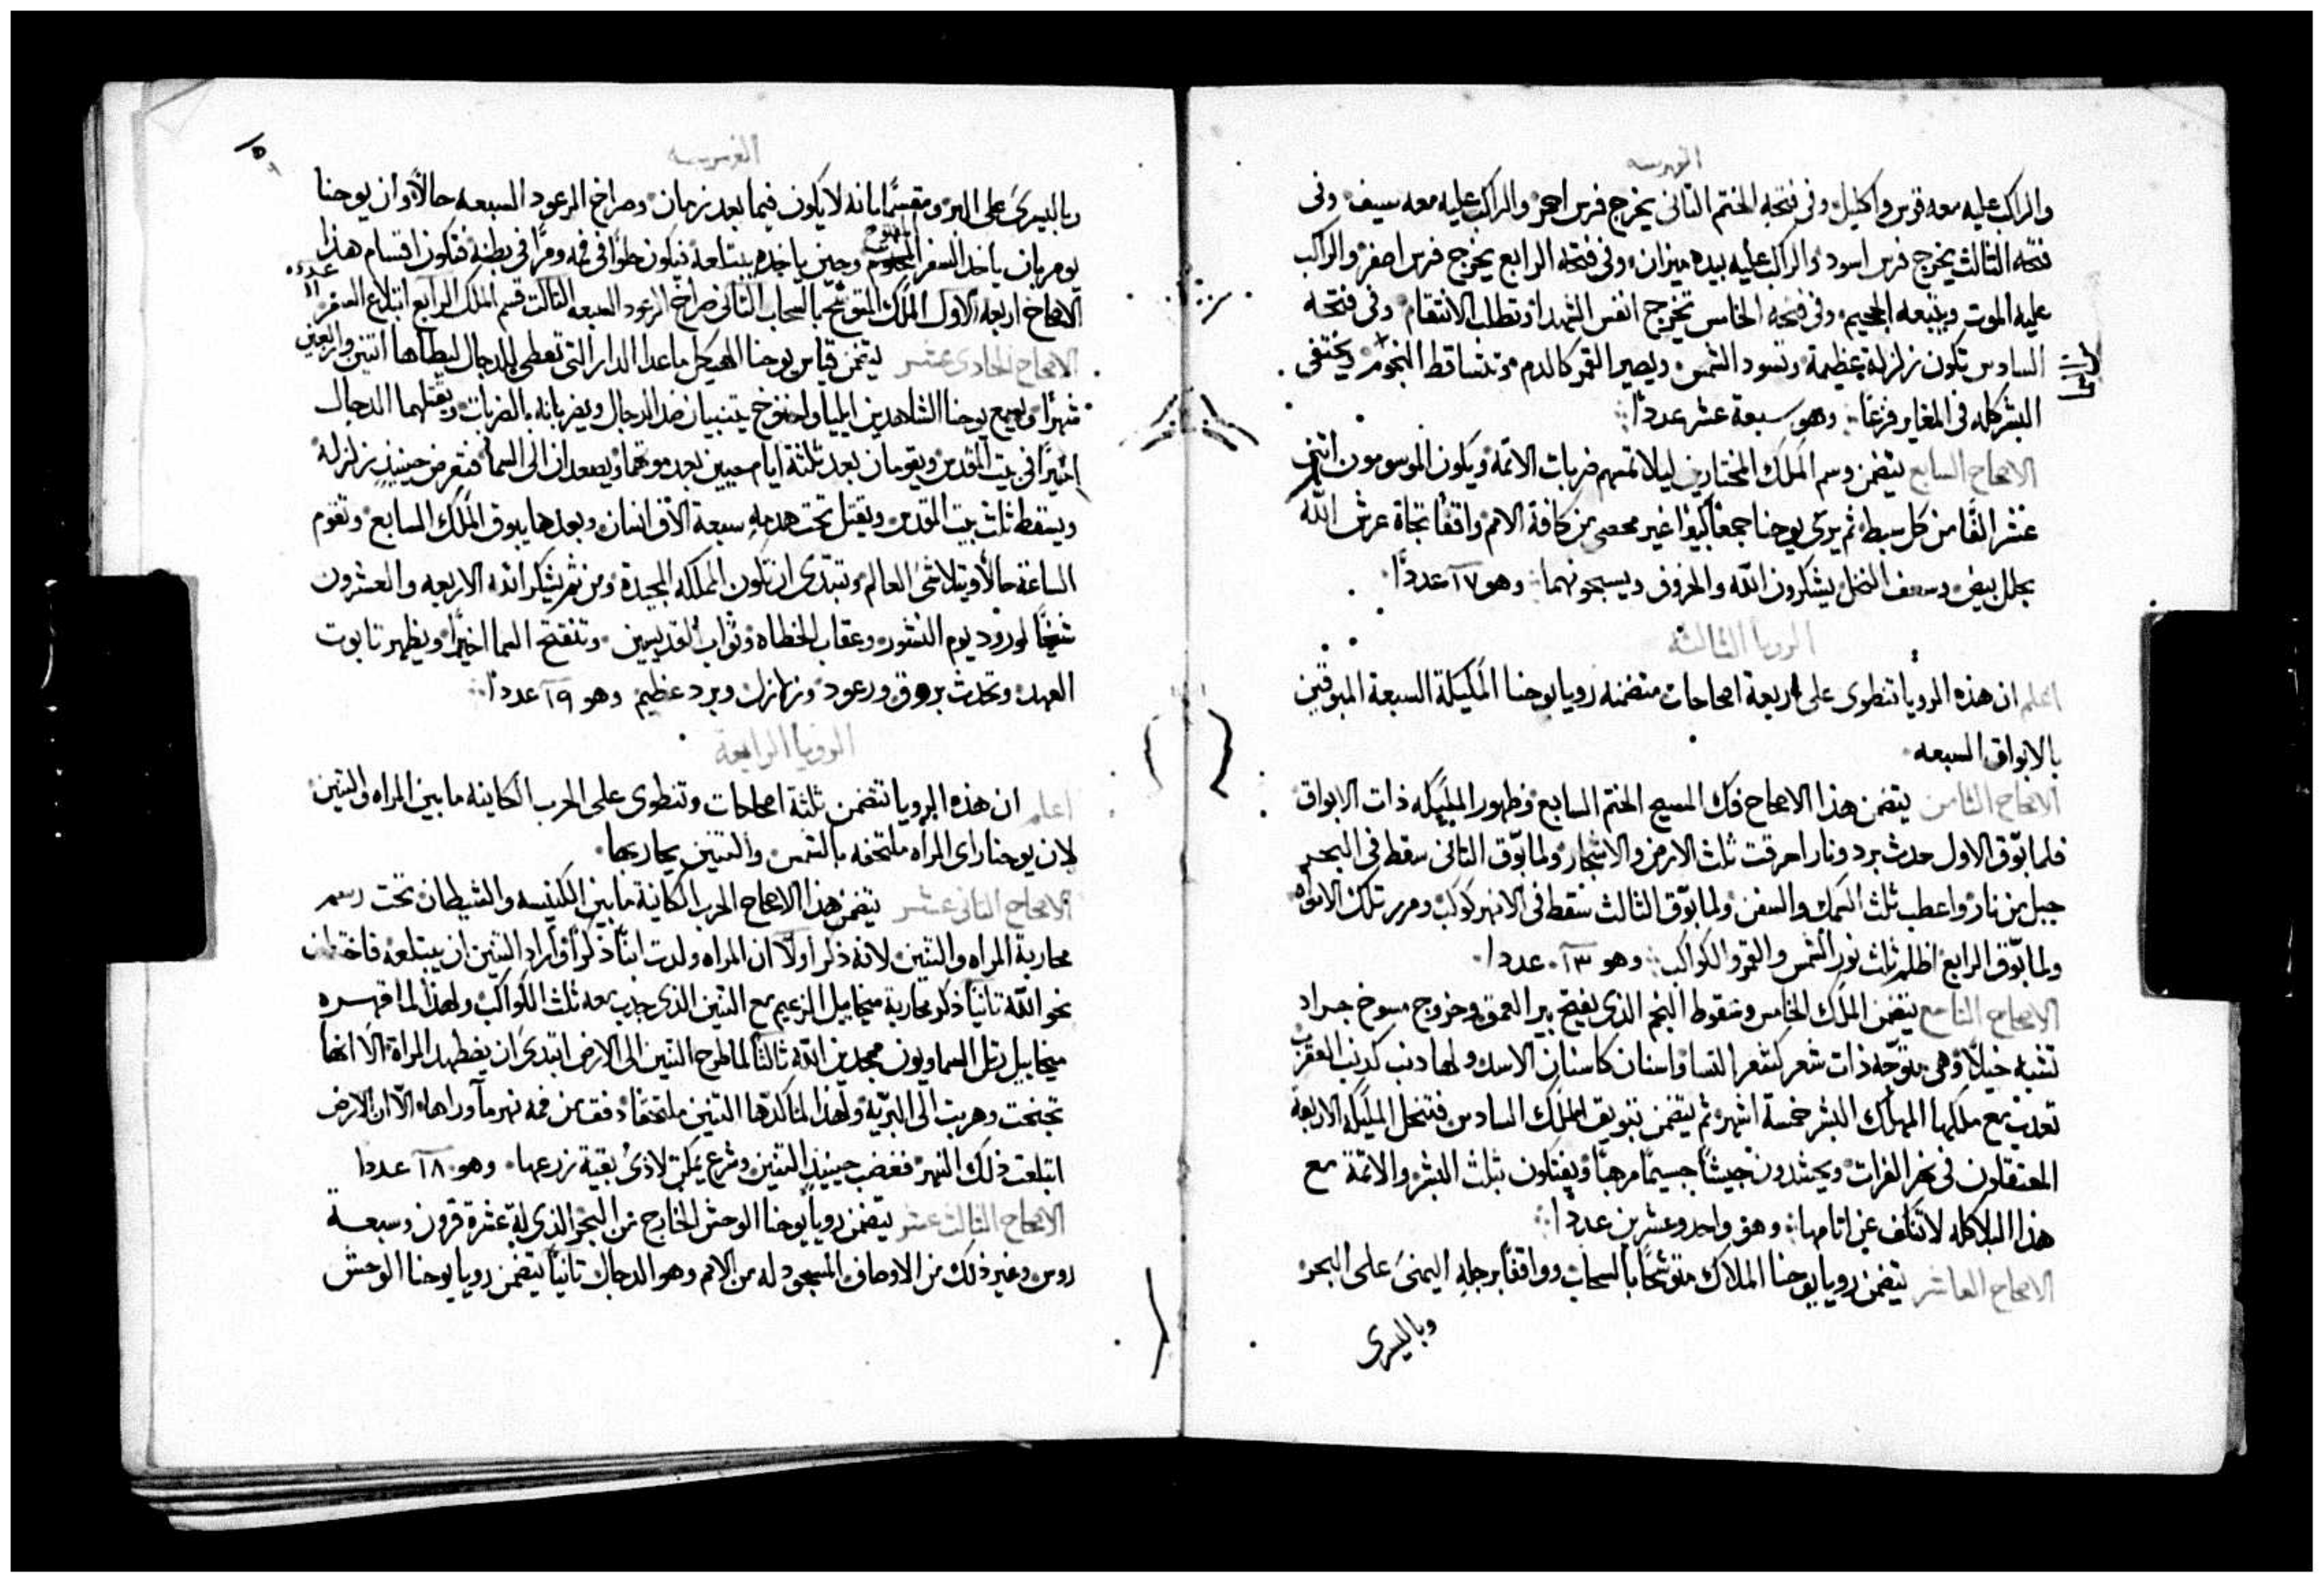 الفهرسه
والراكب عليه معه قوس واكليل وفى فتحه الختم الثانى يخرج فرس احمر والراكب عليه معه سيف وفى
فتحه الثالث يخرج فرس اسود والراكب عليه بيده ميزان وفى فتحه الرابع يخرج فرس اصفر والراكب
عليه الموت ويتبعه الجحيم وفى فتحه الخامس تخرج انفس الشهدا وتطلب الانتقام وفى فتحه
السادس تكون زلزلة عظيمة وتسود الشمس ويصير القمر كالدم وتتساقط النجوم ويختفى
البشر كله فى المغاير فزعًا وهو سبعة عشر عددًا
الاصحاح السابع يتضمن وسم الملك المختارين ليلا تمسهم ضربات الاتمة ويكون الموسومون اثنى
عشر الفًا من كل سبط ثم يرى يوحنا جمعًا كبيرًا غير محصى من كافة الامم واقفًا تجاة عرش الله
بحلل بيض وسعف النخل يشكرون الله والخروف ويسبحونهما وهو ١٧ عددًا
الرويا الثالثة
اعلم ان هذه الرويا تنطوى على اربعة اصحاحات متضمنه رويا يوحنا المليكة السبعة المبوقين
بالابواق السبعه
الاصحاح الثامن يتضمن هذا الاصحاح فك المسيح الختم السابع وظهور المليكه ذات الابواق
فلما بوّق الاول حدث برد ونار احرقت ثلث الارض والاشجار ولما بوّق الثانى سقط فى البحر
جبل من نار واعطب ثلث السمك والسفن ولما بوّق الثالث سقط فى الانهر كوكب ومرر تلك الامواه
ولما بوّق الرابع اظلم ثلث نور الشمس والقمر والكواكب وهو ١٣ عددا
الاصحاح التاسع يتضمن الملك الخامس وسقوط النجم الذى يفتح بير العمق وخروج مسوخ جراد
تشبه خيلًا وهى متوجه ذات شعر كشعر النسا واسنان كاسنان الاسد ولها ذنب كذنب العقرب
تعذب مع ملكها المهلك البشر خمسة اشهر ثم يتضمن تبويق الملك السادس فتنحل المليكه الاربعة
المعتقلون فى نهر الفرات ويحشدون جيشًا جسيمًا مرهبًا ويقتلون ثلث البشر والاتمة مع
هذا البلا كله لا تنكف عن اثامها وهو واحد وعشرين عددًا
الاصحاح العاشر يتضمن رويا يوحنا الملاك متوشحًا بالسحاب وواقفًا برجله اليمنى على البحر
وباليسرى
الفهرسه
وباليسرى على البر ومقسمًا بانه لا يكون فيما بعد زمان وصراخ الرعود السبعه حالًا وان يوحنا
يومر بان ياخذ السفر المفتوح وحين ياخذه يبتلعه فيكون حلوًا فى فمه ومرًا فى بطنه فتكون اقسام هذا
الاصحاح اربعه الاول الملك المتوشح بالسحاب الثانى صراخ الرعود السبعه الثالث قسم الملك الرابع ابتلاع السفر عدده ١١
الاصحاح الحادى عشر يتضمن قياس يوحنا الهيكل ما عدا الدار التى تعطى للدجال ليطاها اثنين واربعين
شهرًا ويسمع يوحنا الشاهدين ايليا واخنوخ يتنبيان ضد الدجال ويضربانه بالضربات ويقتلهما الدجال
اخيرًا فى بيت المقدس ويقومان بعد ثلثة ايام حيين بعد موتهما ويصعدان الى السما فتعرض حينيذ زلزلة
ويسقط ثلث بيت المقدس ويقتل تحت هدمه سبعة الاف انسان وبعدها يبوق الملك السابع وتقوم
الساعة حالًا ويتلاشى العالم وتبتدى ان تكون المملكه المجيدة ومن ثم يشكر الله الاربعه والعشرون
شيخًا لورود يوم النشور وعقاب الخطاه وثواب القديسين وتنفتح السما اخيرًا ويظهر تابوت
العهد وتحدث بروق ورعود وزلازل وبرد عظيم وهو ١٩ عددًا
الرويا الرابعة
اعلم ان هذه الرويا تتضمن ثلثة اصحاحات وتنطوى على الحرب الكاينه ما بين المراه والتنين
لان يوحنا راى المراه ملتحفه بالشمس والتنين يحاربها
الاصحاح الثانى عشر يتضمن هذا الاصحاح الحرب الكاينة ما بين الكنيسه والشيطان تحت رسم
محاربة المراه والتنين لانه ذكر اولًا ان المراه ولدت ابنًا ذكرًا واراد التنين ان يبتلعه فاختطف
نحو الله ثانيًا ذكر محاربة ميخاييل الزعيم مع التنين الذى جذب معه ثلث الكواكب ولهذا لما قهره
ميخاييل رتل السماويون ممجدين الله ثالثًا لما طرح التنين الى الارض ابتدى ان يضطهد المراة الا انها
تجنحت وهربت الى البريّه ولهذا لما كدّها التنين ملتحقًا دفق من فمه نهر مآ وراها الا ان الارض
ابتلعت ذلك النهر فغضب حينيذ التنين وشرع يمكن لاذى بقية زرعها وهو ١٨ عددا
الاصحاح الثالث عشر يتضمن رويا يوحنا الوحش الخارج من البحر الذى له عشرة قرون وسبعة
روس وغير ذلك من الاوصاف المسجود له من الامم وهو الدجال ثانيًا يتضمن رويا يوحنا الوحش